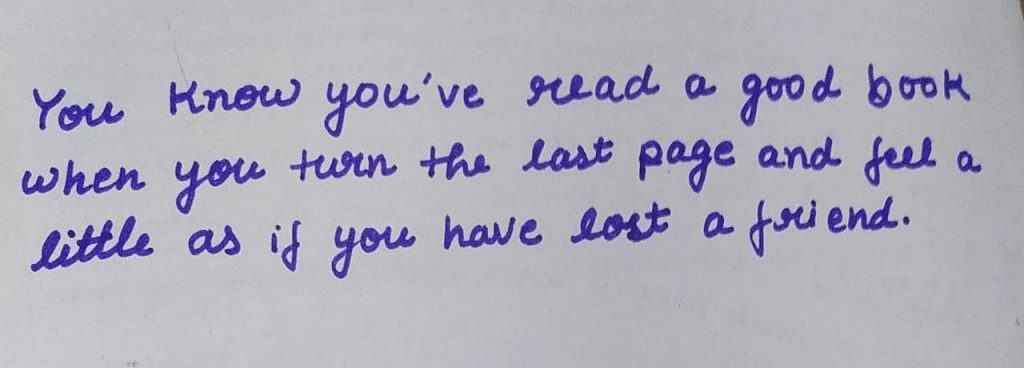 You know you've read a good book
when you turn the last page and feel a
little as if you have lost a friend.